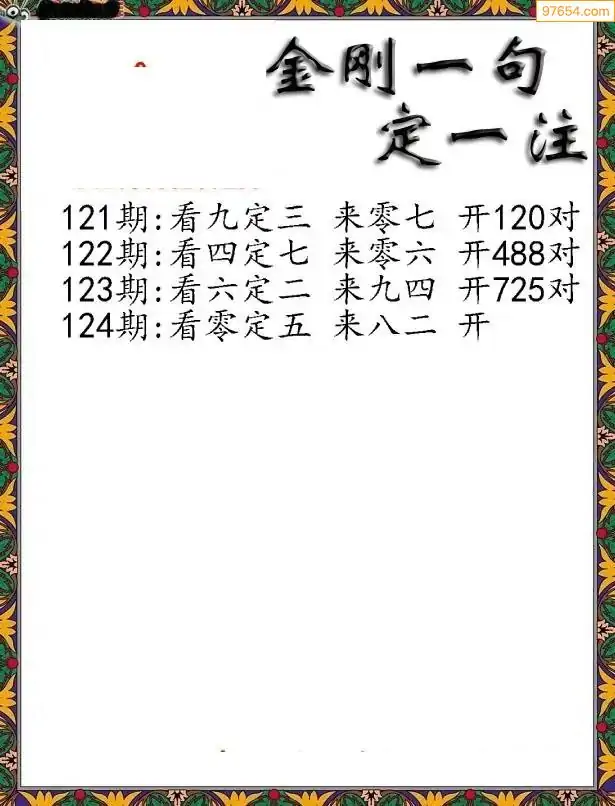 97654.com
金刚一句
定一注
121期:看九定三 来零七 开120对
122期:看四定七 来零六 开488对
123期:看六定二 来九四 开725对
124期:看零定五 来八二 开